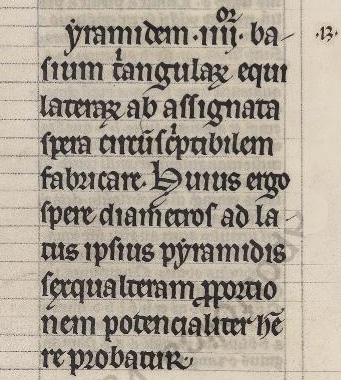 ýramidem ·iiii^oꝝ· ba- ·13·
sium tͥangulaꝝ equi
lateraꝝ ab assignata
spera circũscͥptibilem
fabricare. Huius ergo
spere diametros ad la-
tus ipsius pýramidis
sexqualteram ꝓportio
nem potencialiter hẽ
re probatur·